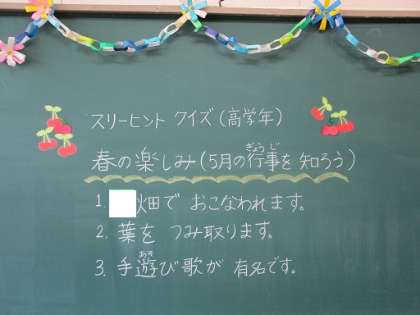 スリーヒント クイズ(高学年)
春の楽しみ(5月の行事を 知ろう)
1 畑で おこなわれます。
2. 葉を つみ取ります。
3. 手遊び歌が 有名です。